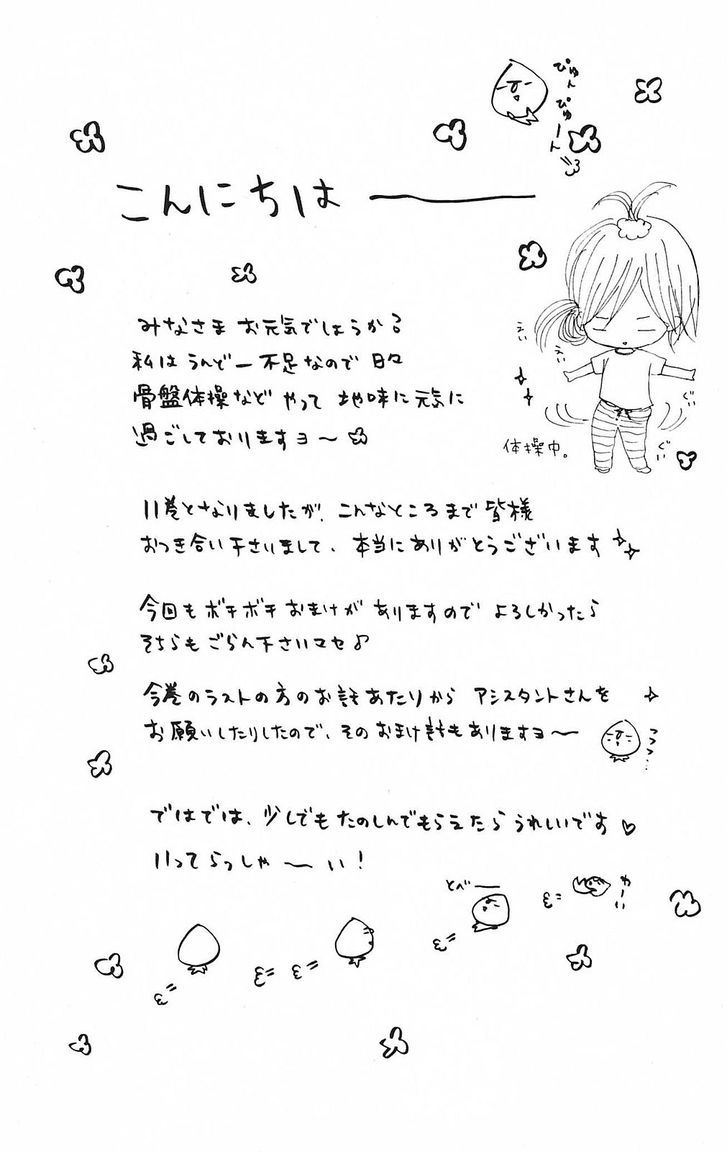 ぴゅん
ぴゅーん
こんにちは――
みなさま お元気でしょうか?
私は うんどー不足なので 日々
骨盤体操など やって 地味に元気に
過ごしておりますヨ〜
えい
えい
ぐい
ぐい
体操中。
11巻となりましたが、こんなところまで 皆様
おつき合い下さいまして、本当にありがとうございます
今回も ボチボチ おまけが ありますので よろしかったら
そちらも ごらん下さいマセ♪
今巻のラストの方のお話あたりから アシスタントさんを
お願いしたりしたので、そのおまけ話もありますヨ〜
フフフ…
ではでは、少しでも たのしんでもらえたら うれしいです♡
いってらっしゃ〜い!
とべー
わーい